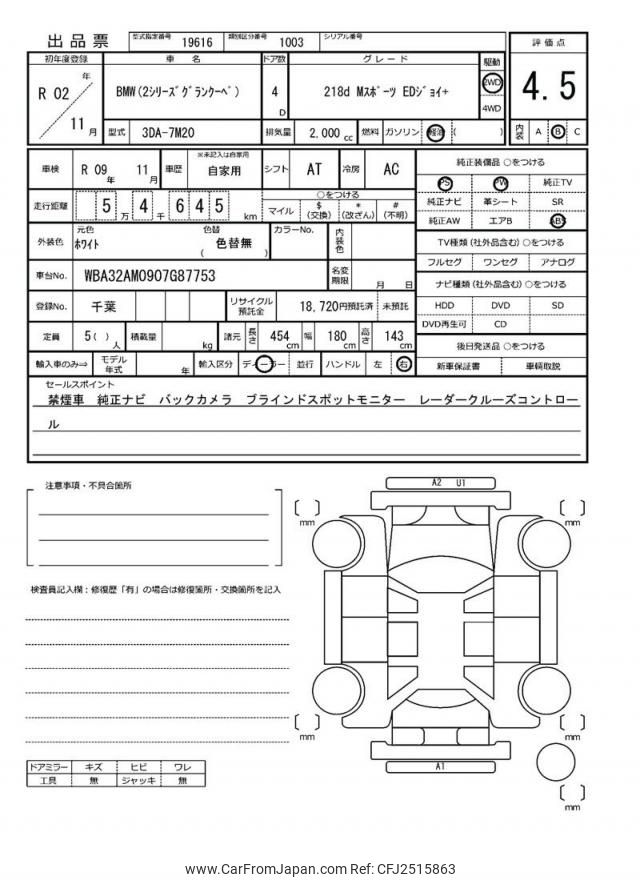 出品票
型式指定番号 19616 類別区分番号 1003 シリアル番号
初年度登録 車名 ドア数 グレード 駆動 評価点
R 02 年 11 月
BMW(2シリーズグランクーペ) 4 D 218d Mスポーツ EDジョイ+ 2WD 4WD
4.5
型式 3DA-7M20 排気量 2,000 cc 燃料 ガソリン 軽油 ( ) 内装 A B C
車検 R 09 年 11 月 車歴 ※未記入は自家用 自家用 シフト AT 冷房 AC
純正装備品 ○をつける
PS PW 純正TV
純正ナビ 革シート SR
純正AW エアB ABS
走行距離 5 万 4 千 6 4 5 km
○をつける
マイル $(交換) *(改ざん) #(不明)
外装色 元色 ホワイト 色替 ( 色替無 ) カラーNo. 内装色
TV種類(社外品含む)○をつける
フルセグ ワンセグ アナログ
車台No. WBA32AM0907G87753 名変期限 月 日
ナビ種類(社外品含む)○をつける
HDD DVD SD
DVD再生可 CD
登録No. 千葉 リサイクル預託金 18,720円預託済 未預託
定員 5( )人 積載量 kg 諸元 長さ 454 cm 幅 180 cm 高さ 143 cm
後日発送品 ○をつける
新車保証書 車輌取説
輸入車のみ⇒ モデル年式 年 輸入区分 ディーラー 並行 ハンドル 左 右
セールスポイント
禁煙車 純正ナビ バックカメラ ブラインドスポットモニター レーダークルーズコントロー
ル
注意事項・不具合箇所
A2 U1
mm
mm
検査員記入欄:修復歴「有」の場合は修復箇所・交換箇所を記入
mm
mm
A1
mm
ドアミラー キズ ヒビ ワレ
工具 無 ジャッキ 無
www.CarFromJapan.com Ref: CFJ2515863